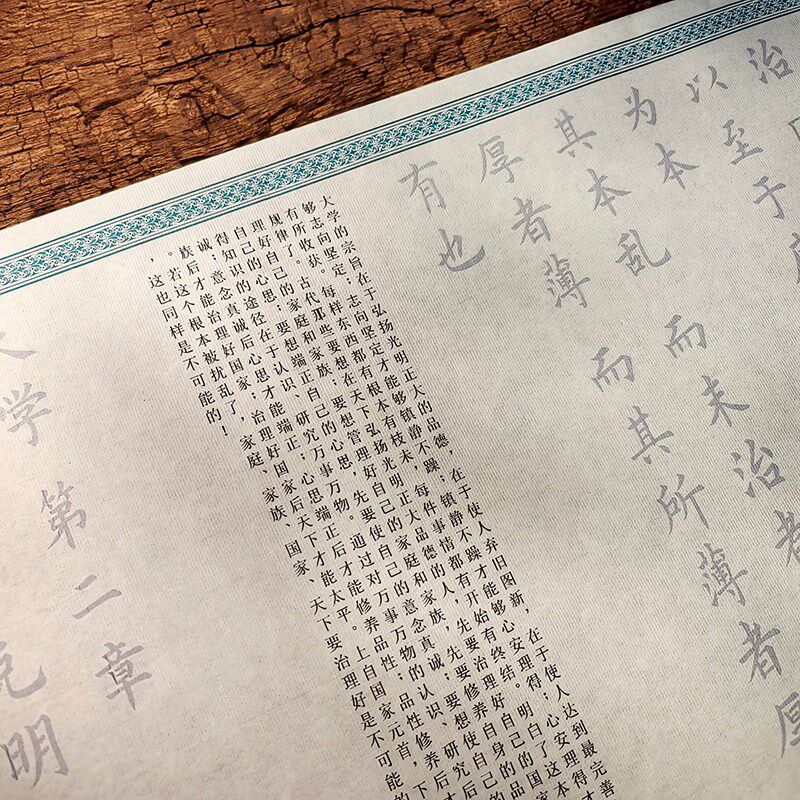 治
以至于庶
为本
其本乱而末治者
厚者薄而其所薄者厚
有也
大学的宗旨在于弘扬光明正大的品德,在于使人弃旧图新,在于使人达到最完善
够志向坚定;志向坚定才能够镇静不躁;镇静不躁才能够心安理得;心安理得才
有所收获。每样东西都有根本有枝末,每件事情都有开始有终结。明白了这本
规律了。古代那些要想在天下弘扬光明正大品德的人,先要治理好自己的国家
理好自己的家庭和家族;要想管理好自己的家庭和家族,先要修养自身的品
自己的心思;要想端正自己的心思,先要使自己的意念真诚;要想使自己的
得知识的途径在于认识、研究万事万物。通过对万事万物的认识、研究后才
诚;意念真诚后心思才能端正;心思端正后才能修养品性;品性修养后才
族后才能治理好国家;治理好国家后天下才能太平。上自国家元首,下
。若这个根本被扰乱了,家庭、家族、国家、天下要治理好是不可能的
,这也同样是不可能的!
大学 第二章
克明